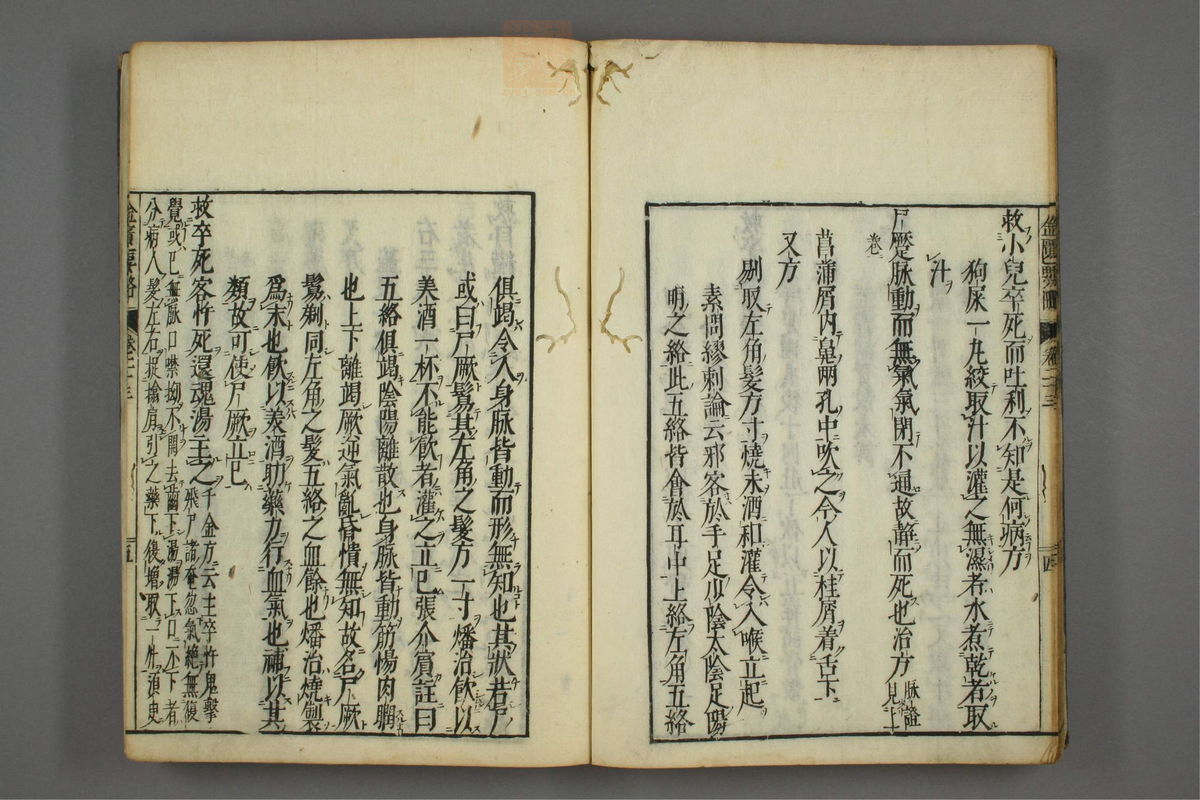 救小兒卒死而吐利不知是何病方
狗屎一丸絞取汁以灌之無濕者水煮乾者取
汁
尸蹷脉動而無氣氣閉不通故靜而死也治方脉證見上卷
菖蒲屑内鼻兩孔中吹之令人以桂屑着舌下
又方
剔取左角髮方寸燒末酒和灌令入喉立起
素問繆刺論云邪客於手足少陰太陰足陽
明之絡此五絡皆會於耳中上絡左角五絡
俱竭令人身脉皆動而形無知也其狀若尸
或曰尸厥鬄其左角之髮方一寸燔治飲以
美酒一杯不能飲者灌之立已張介賓註曰
五絡俱竭陰陽離散也身脉皆動筋惕肉瞤
也上下離竭厥逆氣亂昏憒無知故名尸厥
鬄剃同左角之髮五絡之血餘也燔治燒製
爲末也飲以美酒助藥力行血氣也補以其
類故可使尸厥立已
救卒死客忤死還魂湯主之千金方云主卒忤鬼擊
飛尸諸奄忽氣絶無復
覺或已無脉口噤拗不開去齒下湯湯下口不下者
分病人髮左右捉擒肩引之藥下復增取一升須臾